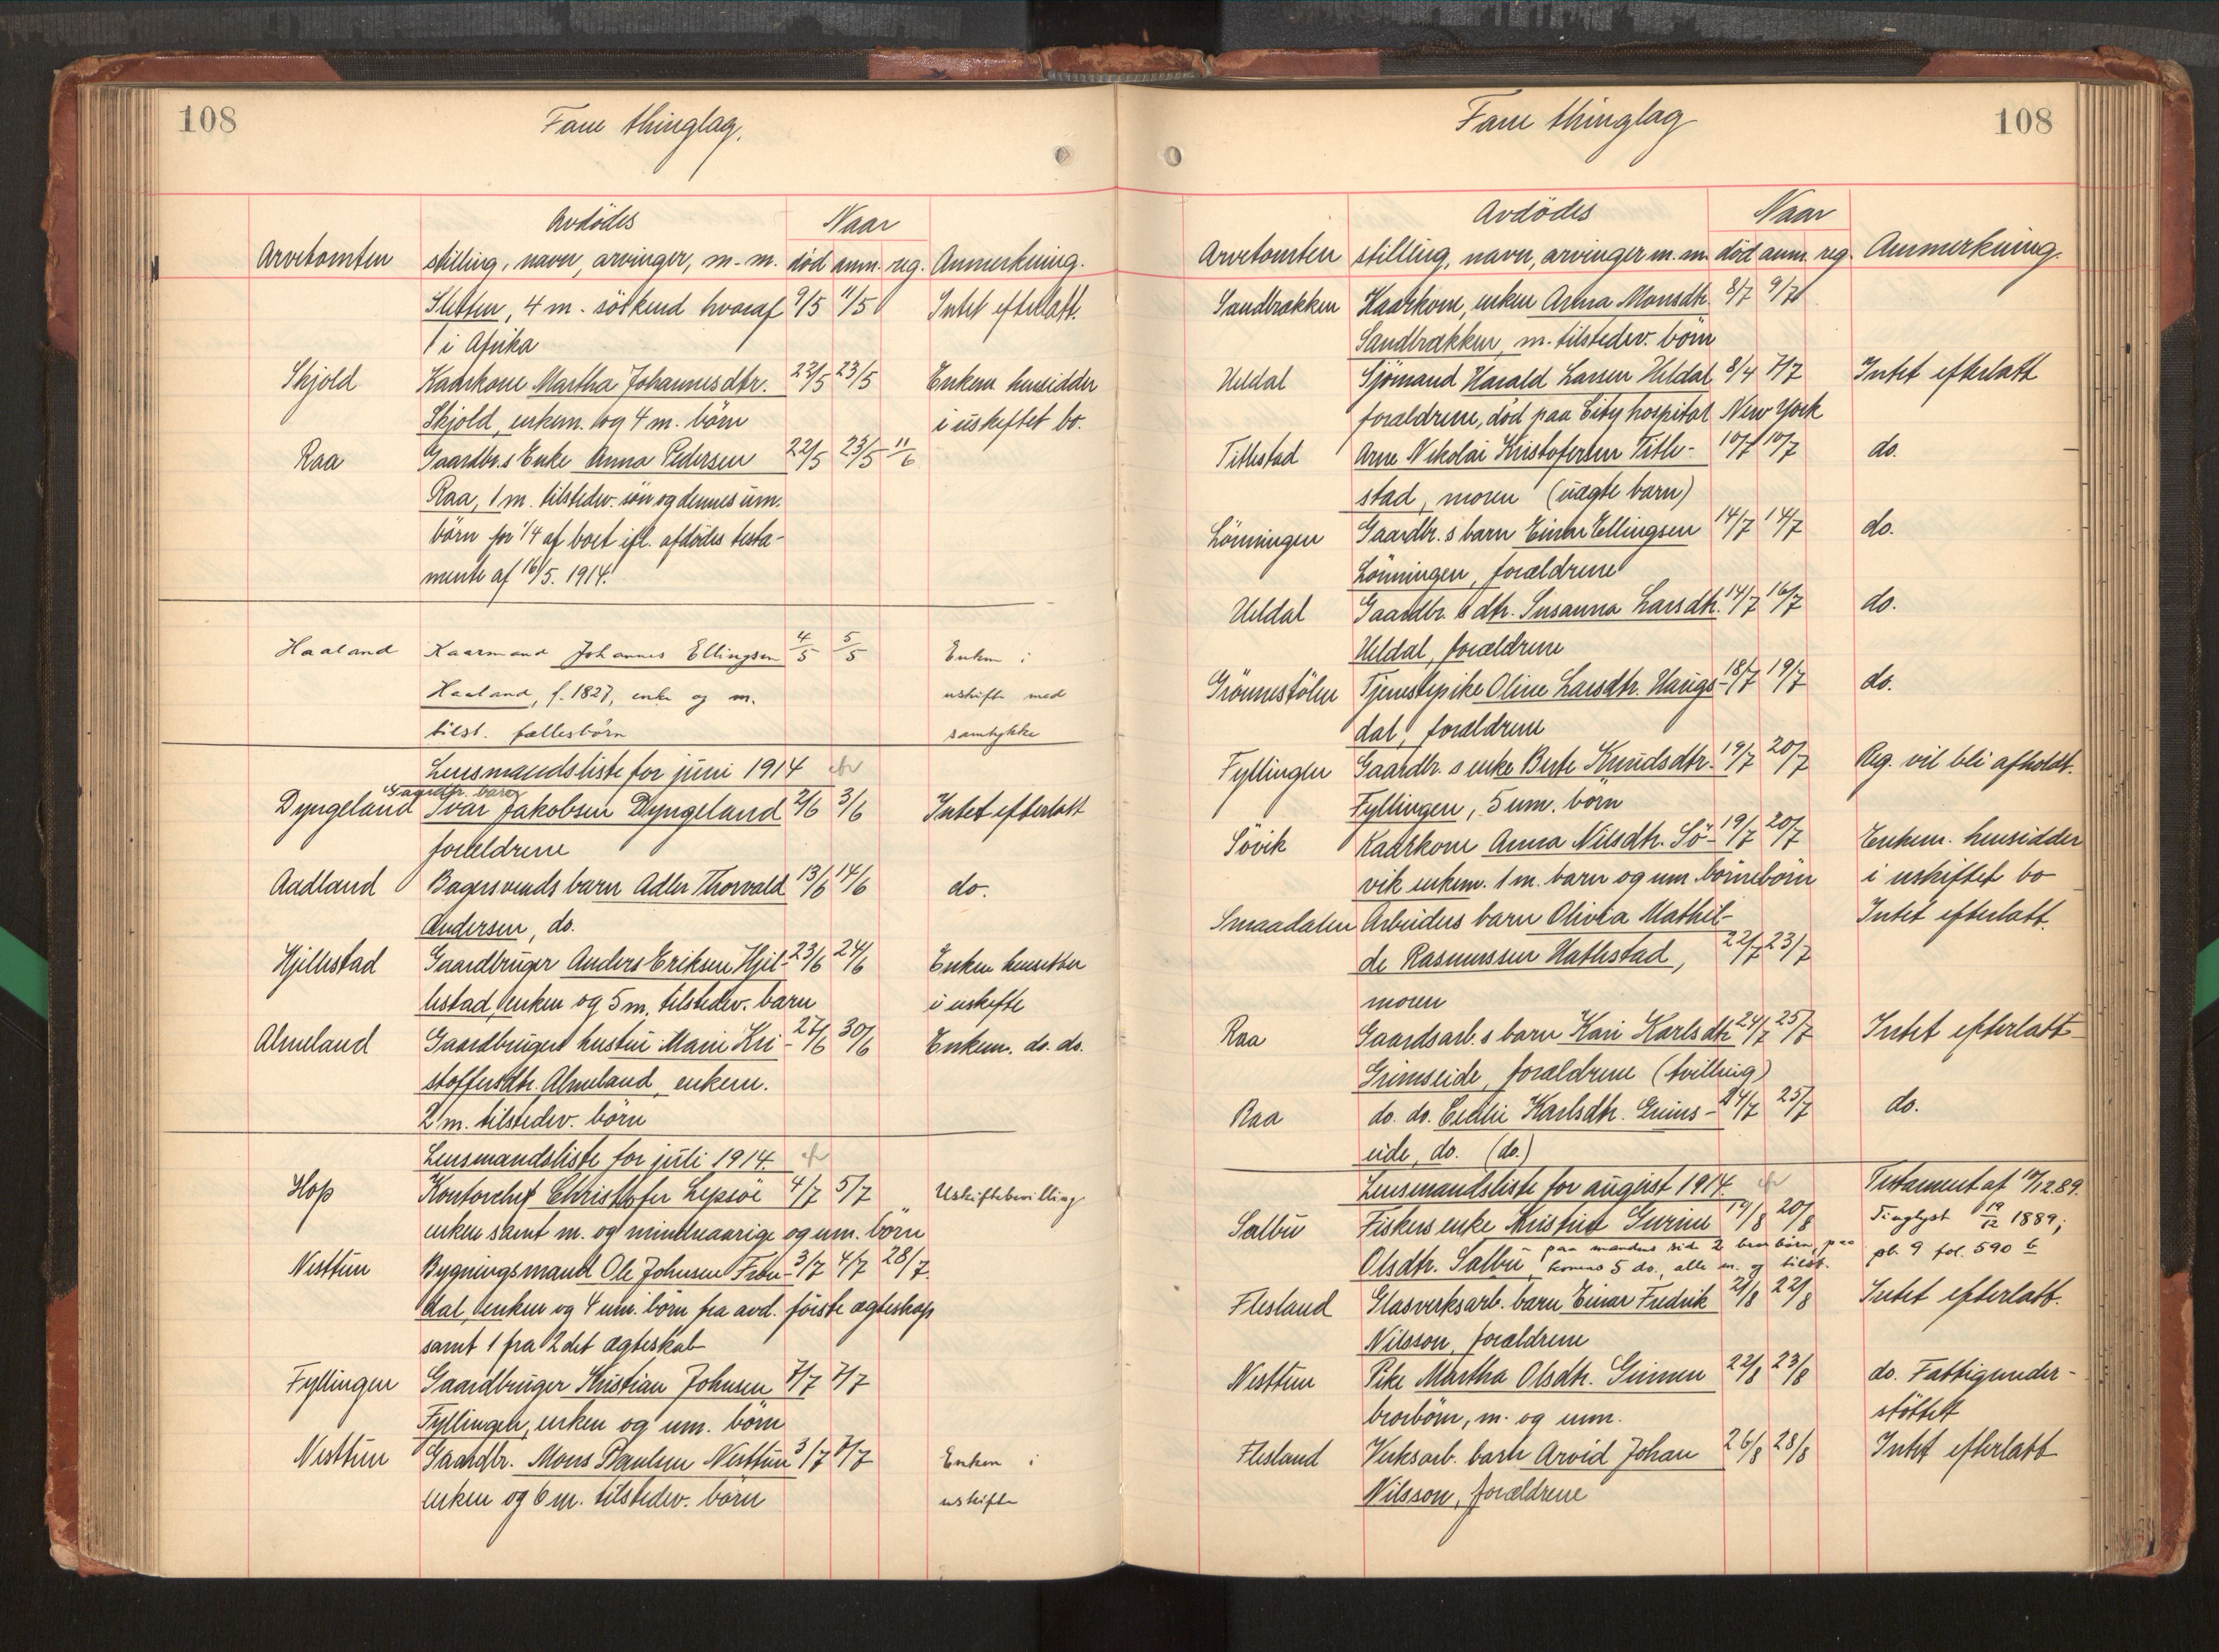 108
Fane thinglag.
Avdödes
Naar
Arvetomten stilling, navn, arvinger, m.m. död anm. reg. Anmerkning.
Sletten, 4 m. söskend hvoraf 9/5 11/5 Intet efterlatt.
1 i Afrika
Skjold Kaarkone Martha Johannesdtr. 22/5 23/5 Enkem hensidder
Skjold, enkem. og 4 m. börn i uskiftet bo.
Raa Gaardbr.s Enke Anna Pedersen 22/5 23/5 11/6
Raa, 1 m. tilstedev. sön og dennes um.
börn for 1/4 af boet ifl. afdödes testa-
mente af 16/5. 1914.
Haaland Kaarmand Johannes Ellingsen 4/5 5/5 Enken i
Haaland, f. 1827, enke og m. uskifte med
tilst. fællesbörn samtykke
Lensmandsliste for juni 1914
Gaardbr. barn
Dyngeland Ivar Jakobsen Dyngeland 2/6 3/6 Intet efterlatt
forældrene
Aadland Bagersvends barn Adler Thorvald 13/6 14/6 do.
Andersen, do.
Hjellestad Gaardbruger Anders Eriksen Hjel- 23/6 24/6 Enken hensitter
lestad, enken og 5 m. tilstedev. barn i uskifte
Almeland Gaardbrugers hustru Mari Kri- 27/6 30/6 Enkem. do. do.
stoffersdtr. Almeland, enkem.
2 m. tilstedev. börn
Lensmandsliste for juli 1914.
Hop Kontorchef Christofer Lepsöe 4/7 5/7 Uskiftebevilling
enken samt m. og mindreaarige og um. börn
Nesttun Bygningsmand Ole Johnsen Frön- 3/7 4/7 28/7.
dal, enken og 4 um. börn fra avd. förste ægteskap
samt 1 fra 2det ægteskab
Fyllingen Gaardbruger Kristian Johnsen 7/7 7/7
Fyllingen, enken og um. börn
Nesttun Gaardbr. Mons Paulsen Nesttun 3/7 7/7 Enken i
enken og 6 m. tilstedev. börn uskifte
108
Fane thinglag
Avdödes
Naar
Arvetomten stilling, navn, arvinger m.m. död anm. reg. Anmerkning.
Sandbrækken Kaarkone, enken Anna Monsdtr. 8/7 9/7
Sandbrækken, m. tilstedev. börn
Heldal Sjömand Harald Larsen Heldal 8/4 7/7 Intet efterlatt
forældrene, död paa City hospital New York
Titlestad Arne Nikolai Kristofersen Title- 10/7 10/7 do.
stad, moren (uægte barn)
Lönningen Gaardbr.s barn Einar Ellingsen 14/7 14/7 do.
Lönningen, forældrene
Heldal Gaardbr.s dtr. Susanna Larsdtr. 14/7 16/7 do.
Heldal, forældrene
Grönnestölen Tjenestepike Oline Larsdtr. Haugs- 18/7 19/7 do.
dal, forældrene
Fyllingen Gaardbr.s enke Brite Knudsdtr. 19/7 20/7 Reg. vil bli afholdt.
Fyllingen, 5 um. börn
Sövik Kaarkone Anna Nilsdtr. Sö- 19/7 20/7 Enkem. hensidder
vik enkem. 1 m. barn og um. börnebörn i uskiftet bo
Smaadalen Arbeiders barn Olivia Mathil- Intet efterlatt.
de Rasmussen Hatlestad, 22/7 23/7
moren
Raa Gaardsarb.s barn Kari Karlsdtr. 24/7 25/7 Intet efterlatt
Grimseide, forældrene (tvilling)
Raa do. do. Cecilie Karlsdtr. Grims- 24/7 25/7 do.
eide, do. (do.)
Lensmandsliste for august 1914. Testament af 10/12 89.
Salbu Fiskers enke Kristine Gurine 19/8 20/8 Tinglyst 19/12 1889;
Olsdtr. Salbu - paa mandens side 2 brorbörn, paa konens 5 do., alle m. og tilst. pb. 9 fol. 590 b
Flesland Glasverksarb. barn Einar Fredrik 21/8 22/8 Intet efterlatt.
Nilsson, forældrene
Nesttun Pike Martha Olsdtr. Grimen 22/8 23/8 do. Fattigunder-
brorbörn, m. og um. stöttet
Flesland Verksarb. barn Arvid Johan 26/8 28/8 Intet efterlatt
Nilsson, forældrene